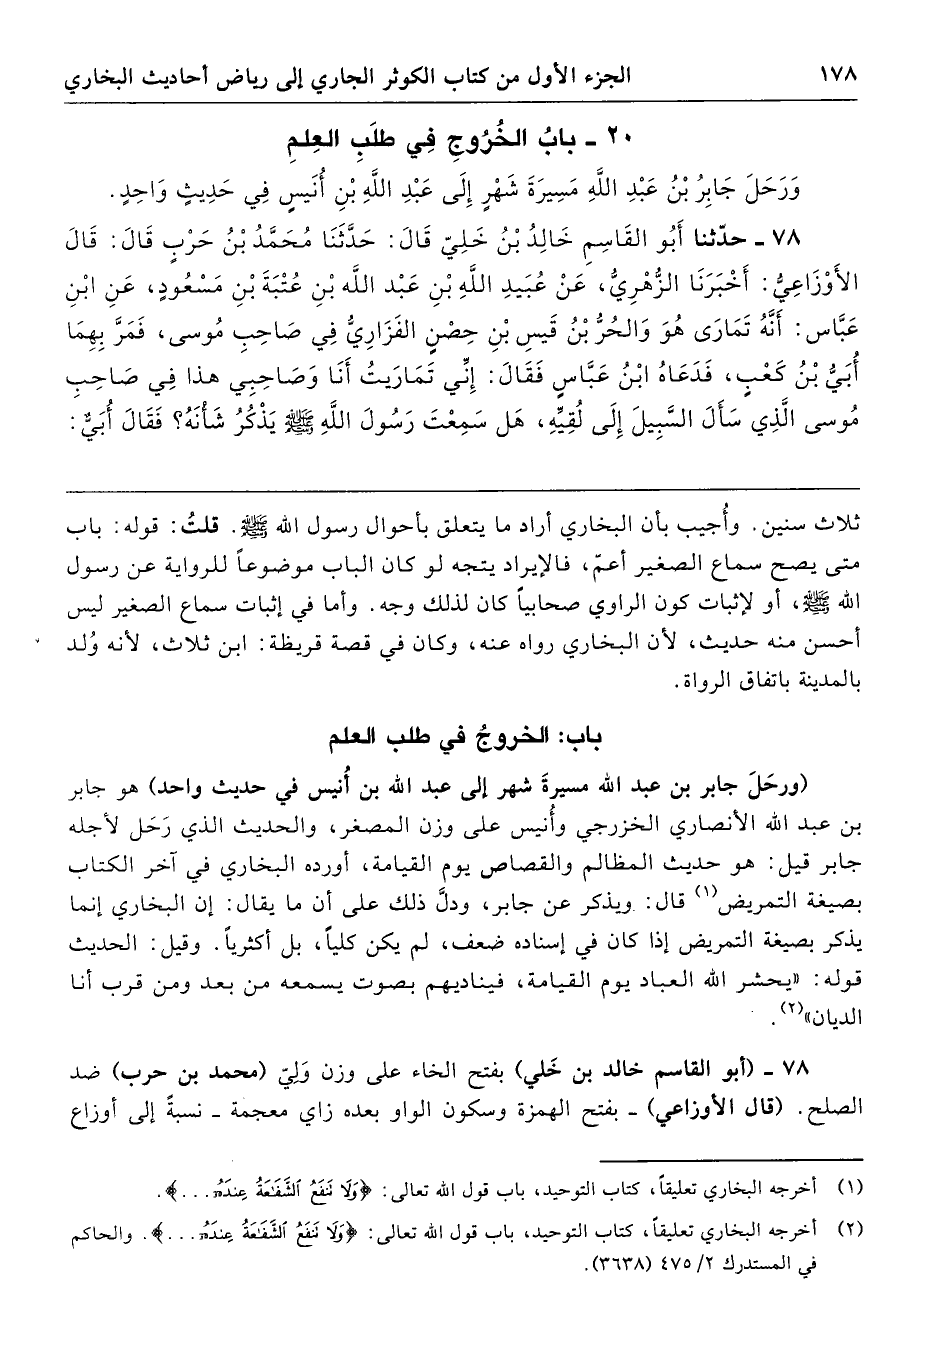 ١٧٨ الجزء الأول من كتاب الكوثر الجاري إلى رياض أحاديث البخاري
٢٠ ـ بابُ الخُرُوجِ فِي طلَبِ العِلمِ
وَرَحَلَ جَابِرُ بْنُ عَبْدِ اللَّهِ مَسِيرَةَ شَهْرٍ إِلَى عَبْدِ اللَّهِ بْنِ أُنَيسٍ فِي حَدِيثٍ وَاحِدٍ.
٧٨ ـ حدّثنا أَبُو القَاسِمِ خَالِدُ بْنُ خَلِيّ قَالَ: حَدَّثَنَا مُحَمَّدُ بْنُ حَرْبٍ قَالَ: قَالَ
الأَوْزَاعِيُّ: أَخْبَرَنَا الزُّهْرِيُّ، عَنْ عُبَيدِ اللَّهِ بْنِ عَبْد اللَّه بْنِ عُتْبَةَ بْنِ مَسْعُودٍ، عَنِ ابْنِ
عَبَّاس: أَنَّهُ تَمَارَى هُوَ وَالحُرُّ بْنُ قَيسِ بْنِ حِصْنٍ الفَزَارِيُّ فِي صَاحِبِ مُوسى، فَمَرَّ بِهِمَا
أُبَيُّ بْنُ كَعْبٍ، فَدَعَاهُ ابْنُ عَبَّاسٍ فَقَالَ: إِنِّي تَمَارَيتُ أَنَا وَصَاحِبِي هذا فِي صَاحِبِ
مُوسى الَّذِي سَأَلَ السَّبِيلَ إِلَى لُقِيِّهِ، هَل سَمِعْتَ رَسُولَ اللَّهِ ﷺ يَذْكُرُ شَأْنَهُ؟ فَقَالَ أُبَيٌّ:
ثلاث سنين. وأُجيب بأن البخاري أراد ما يتعلق بأحوال رسول الله ﷺ. قلتُ: قوله: باب
متى يصح سماع الصغير أعمّ، فالإيراد يتجه لو كان الباب موضوعاً للرواية عن رسول
الله ﷺ، أو لإثبات كون الراوي صحابياً كان لذلك وجه. وأما في إثبات سماع الصغير ليس
أحسن منه حديث، لأن البخاري رواه عنه، وكان في قصة قريظة: ابن ثلاث، لأنه وُلد
بالمدينة باتفاق الرواة.
باب: الخروجُ في طلب العلم
(ورحَلَ جابر بن عبد الله مسيرةَ شهر إلى عبد الله بن أُنيس في حديث واحد) هو جابر
بن عبد الله الأنصاري الخزرجي وأُنيس على وزن المصغر، والحديث الذي رَحَل لأجله
جابر قيل: هو حديث المظالم والقصاص يوم القيامة، أورده البخاري في آخر الكتاب
بصيغة التمريض(١) قال: ويذكر عن جابر، ودلَّ ذلك على أن ما يقال: إن البخاري إنما
يذكر بصيغة التمريض إذا كان في إسناده ضعف، لم يكن كلياً، بل أكثرياً. وقيل: الحديث
قوله: «يحشر الله العباد يوم القيامة، فيناديهم بصوت يسمعه من بعد ومن قرب أنا
الديان»(٢).
٧٨ ـ (أبو القاسم خالد بن خَلي) بفتح الخاء على وزن وَلِيّ (محمد بن حرب) ضد
الصلح. (قال الأوزاعي) ـ بفتح الهمزة وسكون الواو بعده زاي معجمة ـ نسبةً إلى أوزاع
(١) أخرجه البخاري تعليقاً، كتاب التوحيد، باب قول الله تعالى: ﴿وَلَا نَنفَعُ ٱلشَّفَٰعَةُ عِندَهُۥ...﴾.
(٢) أخرجه البخاري تعليقاً، كتاب التوحيد، باب قول الله تعالى: ﴿وَلَا نَنفَعُ ٱلشَّفَٰعَةُ عِندَهُۥ...﴾. والحاكم
في المستدرك ٢/ ٤٧٥ (٣٦٣٨).